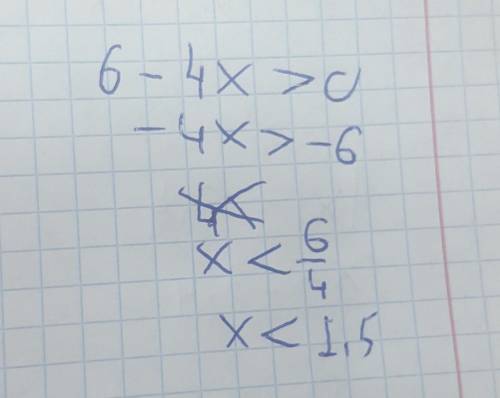 6 - 4x > 0
-4x > -6
x < 6/4
x < 1,5